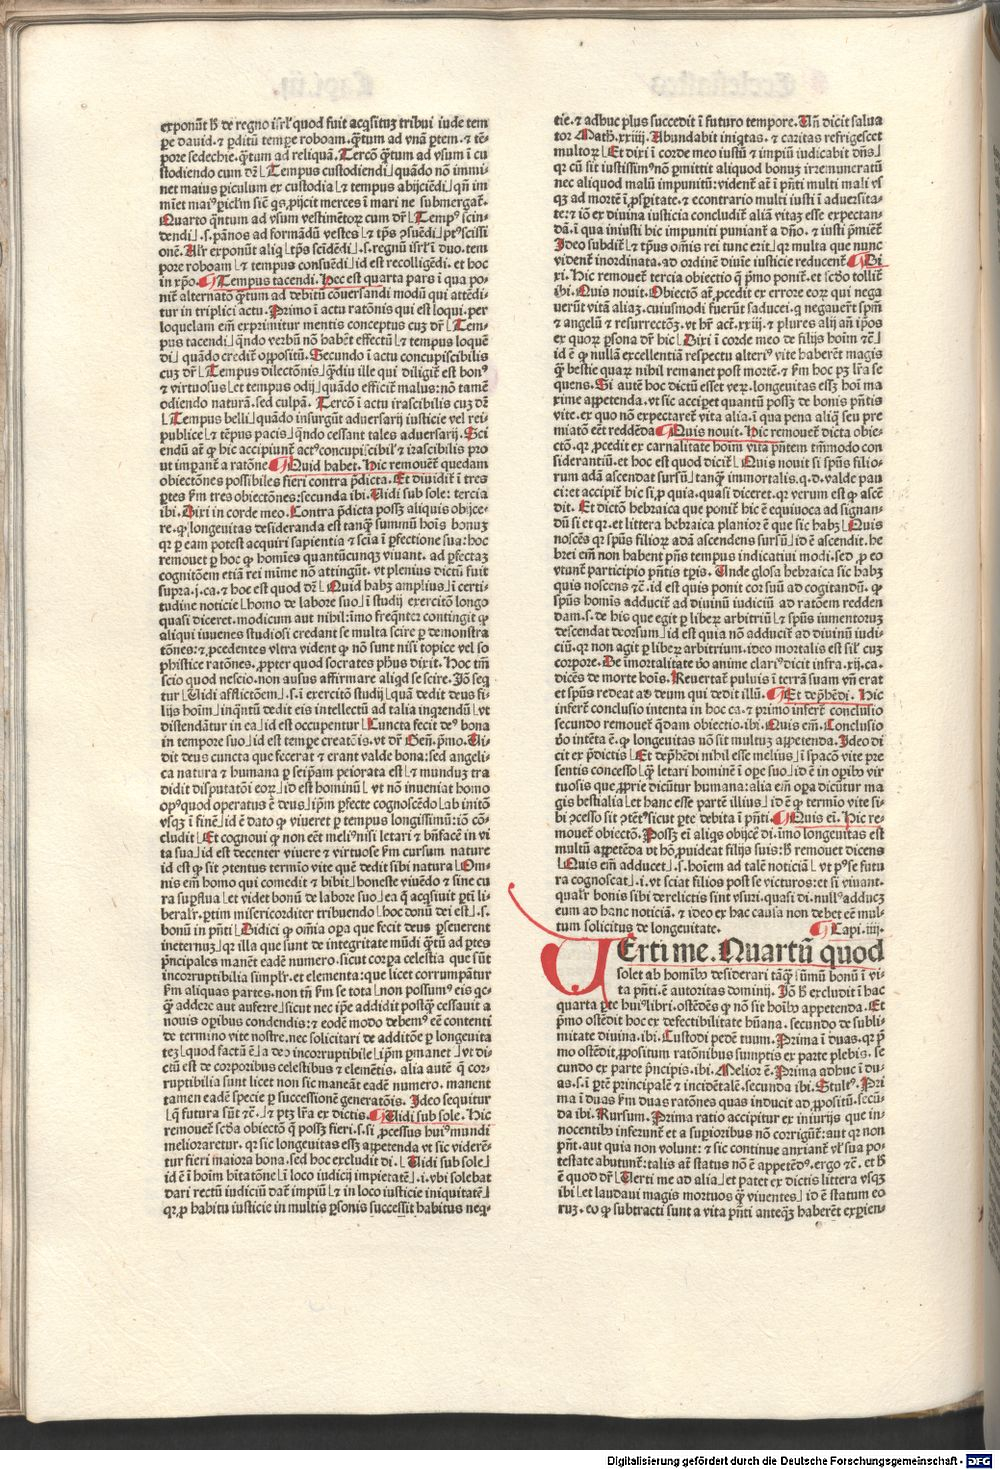 exponūt h̄ de regno isrl' quod fuit acq̄situꝫ tribui iude tem
ꝑe dauid. ⁊ ꝑditū temꝑe roboam. q̄ꝫtum ad vnā ꝑtem. ⁊ tē
pore sedechie. q̄ꝫtum ad reliquā. Tercō q̄ꝫtum ad vsum ī cu
stodiendo cum dr̄ Tempus custodiendi quādo nō immi
net maius ꝑiculum ex custodia ⁊ tempus abijciēdi qn̄ im
minet
Quarto q̄ntum ad vsum vestimētoꝝ cum dr̄ Tempꝰ scin
dendi .s. pānos ad formādū vestes ⁊ tp̄s ꝯsuēdi
onē. Alr̄ exponūt tp̄s scīdēdi .s. regnū isrl'i ī duo. tem
pore roboam ⁊ tempus consuēdi id est recolligēdi. et hoc
in xp̄o. Tempus tacendi. Hec est quarta pars ī qua po-
nit̄ alternatō q̄ꝫtum ad debitū cōuersandi modū qui attēdi
tur in triplici actu. Primo ī actu ratōnis qui est loqui. per
loquelam em̄ exprimitur mentis conceptus cuꝫ dr̄ Tem-
pus tacendi qn̄do verbū nō habēt effectū ⁊ tempus loquē
di quādo credit̄ oꝓpositū. Secundo ī actu concupiscibilis
cuꝫ dr̄ Tempus dilectōnis q̄ꝫdiu ille qui diligit̄ est bonꝰ
⁊ virtuosus et tempus odij quādo efficit̄ malus: nō tamē
odiendo naturā. sed culpā. Tercō ī actu irascibilis cuꝫ dr̄
Tempus belli quādo insurgūt aduersarij iusticie vel rei-
publice ⁊ tēpus pacis qn̄do cessant tales aduersarij. Sci
endū at̄ ꝙ hic accipiunt̄ actꝰ concupiscibil' ⁊ irascibilis pro
ut imperant̄ a ratōne Quid habet. Hic remouet̄ quedam
obiectōnes possibiles fieri contra p̄dicta. Et diuidit̄ ī tres
ꝑtes km̄ tres obiectōnes: secunda ibi. Vidi sub sole: tercia
ibi. Dixi in corde meo. Contra p̄dicta possꝫ aliquis obijce-
re. ꝙ longeuitas desideranda est tanqꝫ summū hoīs bonuꝫ
qꝛ ꝑ eam potest acquiri sapientis ⁊ scīa ī ꝑfectione sua: hoc
remouet ꝑ hoc ꝙ homīes quantūcunqꝫ viuant. ad ꝑfectaꝫ
cognitōem etiā rei mīme nō attingūt. vt plenius dictū fuit
supra .j. ca. ⁊ hoc est quod dr̄ Quid habꝫ amplius ī certi-
tudine noticie homo de labore suo ī studij exercitō longo
quasi diceret. modicum aut nihil: īmo freq̄nter contingit ꝙ
aliqui iuuenes studiosi credant se multa scire ꝑ demonstra
tōnes: ⁊ ꝓcedentes vltra vident ꝙ nō sunt nisi topice vel so
phistice ratōnes. ꝓpter quod socrates ph̄us dixit. Hoc tm̄
scio quod nescio. non ausus affirmare aliqd se scire. Iō seq̄
tur Vidi afflictōem .s. ī exercitō studij quā dedit deus fi-
lijs hoīm inq̄ntū dedit eis intellectū ad talia ingrendū vt
distendātur in ea id est occupentur Cuncta fecit deꝰ bona
in tempore suo id est tempe creatōis. vt dr̄ Geñ. pͥmo. Vi-
dit deus cuncta que fecerat ⁊ erant valde bona: sed angeli-
ca natura ⁊ humana ꝑ seip̄am peiorata est ⁊ munduꝫ tra
didit disputatōni eoꝝ id est hominū vt nō inueniat homo
opꝰ quod operatus ē deus ip̄m ꝑfecte cognoscēdo ab initō
vsqꝫ ī finē id ē dato ꝙ viueret ꝑ tempus longissimū: iō cō-
cludit Et cognoui ꝙ non eēt meliꝰ nisi letari ⁊ bn̄facē in vi
ta sua id est decenter viuere ⁊ virtuose km̄ cursum nature
id est ꝙ sit ꝯtentus termīo vite quē dedit sibi natura Om-
nis em̄ homo qui comedit ⁊ bibit honeste viuēdo ⁊ sine cu
ra suꝑflua et videt bonū de labore suo ea q̄ acq̄siuit ꝑti li-
beralr̄. ꝑtim misericorditer tribuendo hoc donū dei est .s.
bonū in p̄nti Didici ꝙ om̄ia oꝑa que fecit deus ꝑseuerent
ineternuꝫ qꝛ illa que sunt de integritate mūdi q̄ꝫtū ad ꝑtes
pͥncipales manēt eadē numero. sicut corꝑa celestia que sūt
incorruptibilia simplr̄. et elementa: que licet corrumpātur
km̄ aliquas partes. non tn̄ km̄ se tota non possumꝰ eis qc-
q̄ꝫ addere aut auferre sicut nec ip̄e addidit postq̄ꝫ cessauit a
nouis opibus condendis: ⁊ eodē modo debemꝰ eē contenti
de termino vite nostre. nec solicitari de additōe ꝑ longeuita
teꝫ quod factū ē a deo incorruptibile ip̄m ꝑmanet vt di-
ctū est de corporibus celestibus ⁊ elemētis. alia autē q̄ cor-
ruptibilia sunt licet non sic maneāt eadē numero. manent
tamen eadē specie ꝑ successionē generatōis. Ideo sequitur
q̄ futura sūt ⁊c̄. ⁊ ptꝫ lr̄a ex dictis. Vidi sub sole. Hic
remouet̄ scd̄a obiectō q̄ possꝫ fieri. s. si ꝓcessus huiꝰ mundi
melioraretur. qꝛ sic longeuitas essꝫ appetenda vt sic viderē-
tur fieri maiora bona. sed hoc excludit di. Vidi sub sole
id ē ī hoīm hītatōne ī loco iudicij impietatē .i. vbi solebat
dari rectū iudiciū daŕ impiū ⁊ in loco iusticie iniquitatē
qꝛ ꝓ habitu iusticie in multis ꝑsonis successit habitus neq̄-
tie. ⁊ adhuc plus succedit ī futuro tempore. Vn̄ dicit salua
tor Math̄. xxiiij. Abundabit iniq̄tas. ⁊ caritas refrigescet
multoꝝ Et dixi ī corde meo iustū ⁊ impiū iudicabit dn̄s
qꝛ cū sit iustissimꝰ nō ꝑmittit aliquod bonuꝫ irremuneratū
nec aliquod malū impunitū: vident̄ at̄ ī p̄nti multi mali vs
qꝫ ad mortē ī ꝓsꝑitate. ⁊ econtrario multi iusti ī aduersita-
te: ⁊ iō ex diuina iusticia concludit̄ aliā vitaꝫ esse expectan-
dā. ī qua iniusti hic impuniti puniant̄ a dn̄o. ⁊ iusti p̄mient̄
Ideo subdit̄ ⁊ tp̄us om̄is rei tunc erit qꝛ multa que nunc
vident̄ inordinata. ad ordinē diuīe iusticie reducent̄ Di
xi. Hic remouet̄ tercia obiectio q̄ pͥmo ponit̄. et scd̄o tollit̄
ibi. Quis nouit. Obiectō at̄ ꝓcedit ex errore eoꝝ qui nega
uerūt vitā aliaꝫ. cuiusmodi fuerūt saducei. q̄ negauerūt sp̄m
⁊ angelū ⁊ resurrectōꝫ. vt hr̄ act̄. xxiij. ⁊ plures alij añ ip̄os
ex quoꝝ ꝑsona dr̄ hic Dixi ī corde meo de filijs hoīm ⁊c̄
id ē ꝙ nullā excellentiā respectu alteriꝰ vite haberēt magis
q̄ꝫ bestie quaꝝ nihil remanet post mortē. ⁊ km̄ hoc pꝫ lr̄a se
quens. Si autē hoc dictū esset veꝝ. longeuitas essꝫ hoī ma
xime appetenda. vt sic accipet quantū possꝫ de bonis p̄ntis
vite. ex quo nō expectaret̄ vita alia. ī qua pena aliq̄ seu pre
miatō eēt reddēda Quis nouit. Hic remouet̄ dicta obie-
ctō. qꝛ ꝓcedit ex carnalitate hoīm vitā p̄ntem tm̄modo con
siderantiū. et hoc est quod dicit̄ Quis nouit si spūs filio-
rum adā ascendat sursū tanq̄ꝫ immortalis. q. d. valde pau
ci: et accipit̄ hic si. ꝓ quia. quasi diceret. qꝛ verum est ꝙ ascē
dit. Et dictō hebraica que ponit̄ hic ē equiuoca ad signan-
dū si et qꝛ. et littera hebraica planior ē que sic habꝫ Quis
noscēs qꝛ spūs filioꝝ adā ascendens sursū id ē ascendit. he
brei em̄ non habent p̄ns tempus indicatiui modi. sed ꝓ eo
vtunt̄ participio p̄ntis tp̄is. Vnde glosa hebraica sic habꝫ
quis noscens ⁊c̄. id est quis ponit cor suū ad cogitandū. ꝙ
spūs homīs adducit̄ ad diuinū iudiciū ad ratōem redden
dam. s. de his que egit ꝑ liberꝝ arbitriū ⁊ spūs iumentoruꝫ
descendat deorsum id est quia nō adducit̄ ad diuinū iudi-
ciū. qꝛ non agit ꝑ liberꝝ arbitrium. ideo mortalis est sil' cuꝫ
corpore. De īmortalitate vō anime clariꝰ dicit infra. xij. ca.
dicēs de morte hoīs. Reuertat̄ puluis ī terrā suam vn̄ erat
et spūs redeat ad deum qui dedit illū. Et dep̄hēdi. Hic
infert̄ conclusio intenta in hoc ca. ⁊ primo infert̄ conclusio
secundo remouet̄ q̄dam obiectio. ibi. Quis em̄. Conclusio
vō intēta ē. ꝙ longeuitas nō sit multuꝫ appetenda. Ideo di
cit ex p̄dictis Et dep̄hēdi nihil esse melius ī spacō vite pre
sentis concesso q̄ꝫ letari hominē ī oꝑe suo id ē in oꝑibꝰ vir
tuosis que ꝓprie dicūtur humana: alia em̄ oꝑa dicūtur ma
gis bestialia et hanc esse partē illius id ē ꝙ termīo vite si-
bi ꝯcesso sit ꝯtētꝰ sicut ꝑte debita ī p̄nti. Quis ei. Hic re-
mouet̄ obiectō. Possꝫ ei aliq̄s obijcē di. īmo longeuitas est
multū appetēda vt hō ꝓuideat filijs suis: h̄ remouet dicens
Quis em̄ adducet .s. hoīem ad talē noticiā vt pꝰ se futu
ra cognoscat .i. vt sciat filios post se victuros: et si viuant.
qualr̄ bonis sibi derelictis sint vsuri. quasi di. nullꝰ adducꝫ
eum ad hanc noticiā. ⁊ ideo ex hac causa non debet eē mul-
tum solicitus de longeuitate. Capi. iiij.
VErti me. Quartū quod
solet ab homībꝰ desiderari tāq̄ꝫ sūmū bonū ī vi-
ta p̄nti. ē autoritas dominij. Iō h̄ excludit ī hac
quarta ꝑte huiꝰ libri. ostēdēs ꝙ nō sit hoībꝰ appetenda. Et
pͥmo ostēdit hoc ex defectibilitate hūana. secundo de subli-
mitate diuina. ibi. Custodi pedē tuum. Prima ī duas. qꝛ pͥ
mo ostēdit ꝓpositum ratōnibus sumptis ex parte plebis. se
cundo ex parte pͥncipis. ibi. Melior ē. Prima adhuc ī du-
as. s. ī ꝑtē principalē ⁊ incidētalē. secunda ibi. Stultꝰ. Pri
ma ī duas km̄ duas ratōnes quas inducit ad ꝓpositū. secū-
da ibi. Rursum. Prima ratio accipitur ex iniurijs que in-
nocentibꝰ inferunt̄ et a suꝑioribus nō corrigūt̄: aut qꝛ non
pn̄t. aut quia non volunt: ⁊ sic continue anxiant̄ vl' sua po-
testate abutunt̄: talis at̄ status nō ē appetēdꝰ. ergo ⁊c̄. et h̄
ē quod dr̄ Verti me ad alia et patet ex dictis littera vsqꝫ
ibi et laudaui magis mortuos q̄ꝫ viuentes id ē statum eo
ruꝫ. eo ꝙ subtracti sunt a vita p̄nti anteqꝫ haberēt exꝑien-
Digitalisierung gefördert durch die Deutsche Forschungsgemeinschaft - DFG